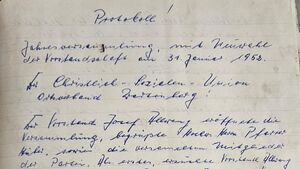 Protokoll!
Jahresversammlung, mit Neuwahl
der Vorstandschaft am 31. Januar 1953.
Der Christlich-Sozialen-Union
Ortsverband
Der Vorstand Josef eröffnete die
Versammlung, begrüßte Herrn Pfarrer
Huber, sowie die versammelten Mitglieder
der Partei. Als erstes, Vorstand